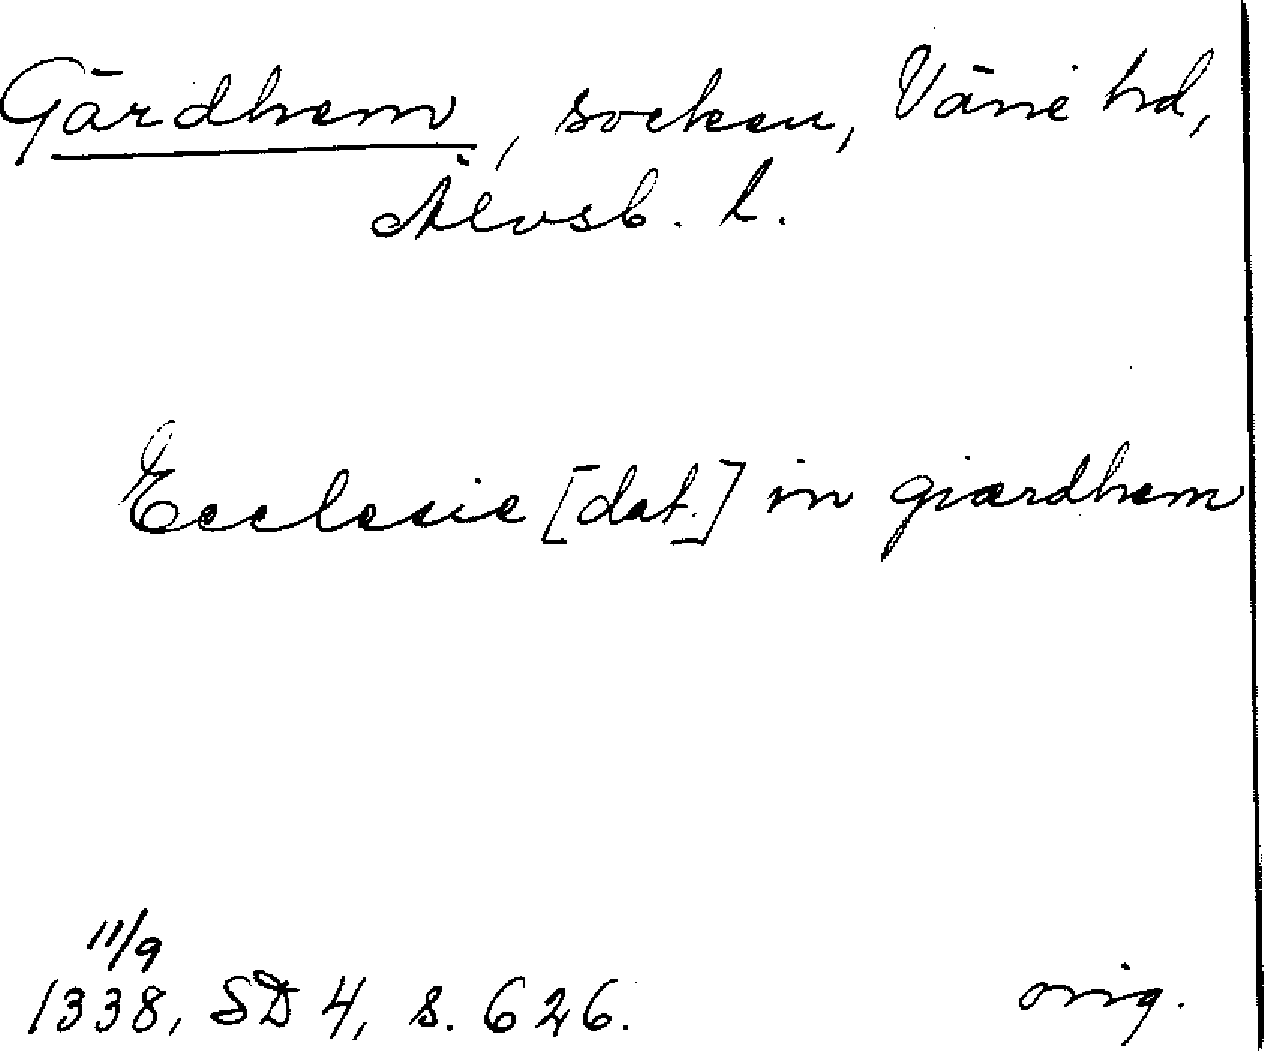 Gärdhem, socken, Väne hd,
Älvsb. l.
Ecclesie [dat.] in giærdhem
11/9
1338, SD 4, s. 626. orig.